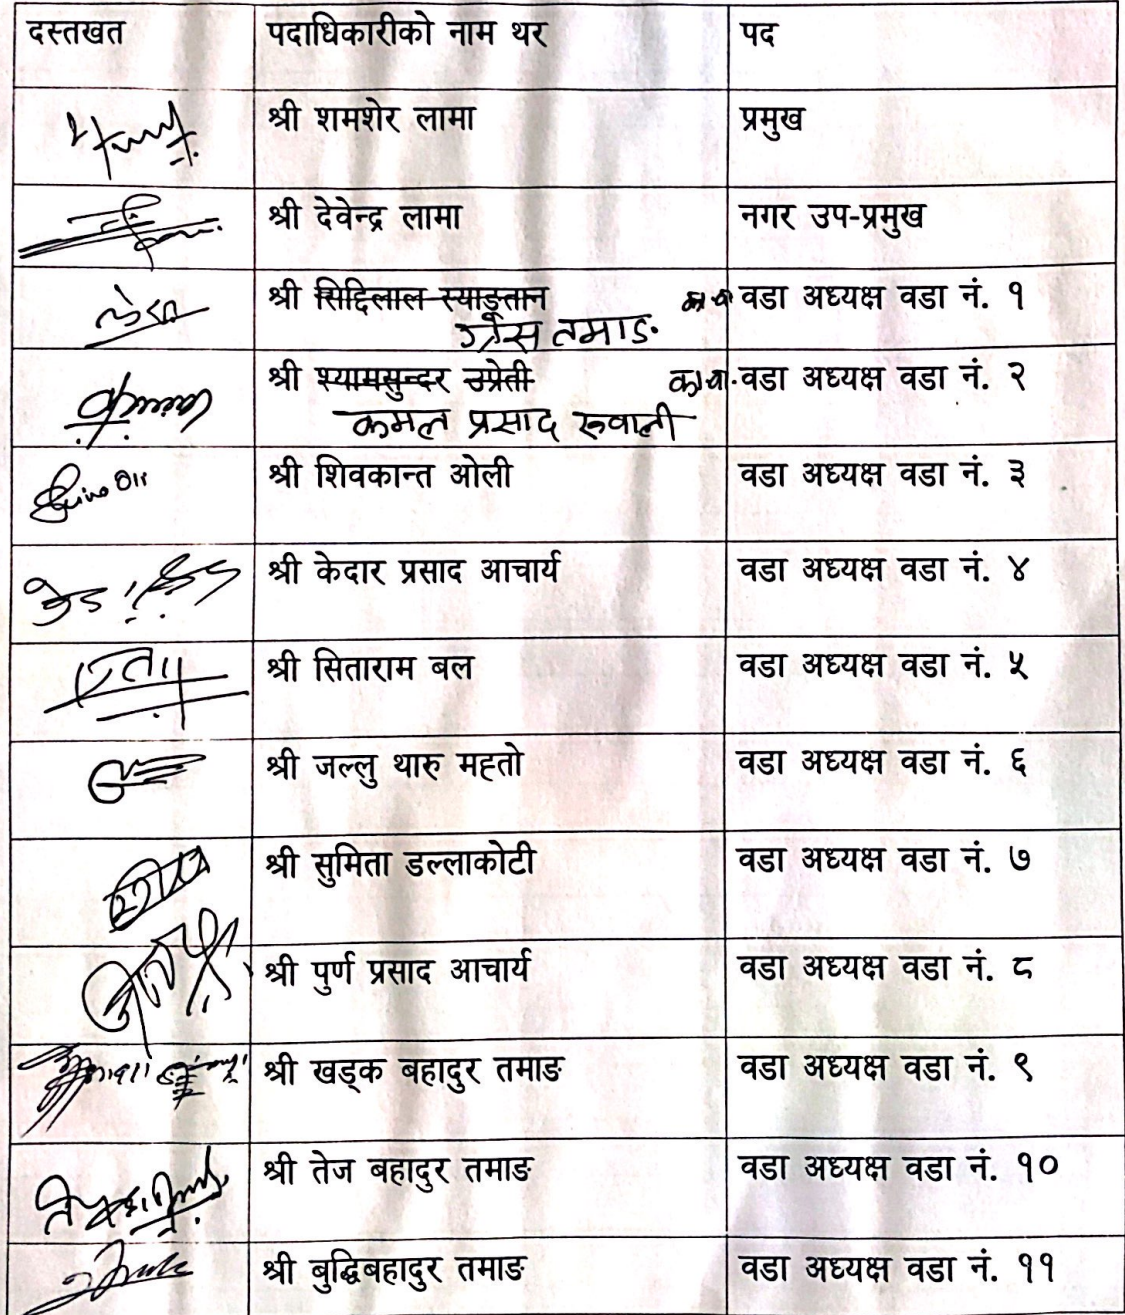 दस्तखत पदाधिकारीको नाम थर पद
श्री शमशेर लामा प्रमुख
श्री देवेन्द्र लामा नगर उप-प्रमुख
श्री सिद्दिलाल स्याङ्तान का.वा वडा अध्यक्ष वडा नं. १
तमाङ
श्री श्यामसुन्दर उप्रेती का.वा. वडा अध्यक्ष वडा नं. २
कमल प्रसाद रुवाली
श्री शिवकान्त ओली वडा अध्यक्ष वडा नं. ३
श्री केदार प्रसाद आचार्य वडा अध्यक्ष वडा नं. ४
श्री सिताराम बल वडा अध्यक्ष वडा नं. ५
श्री जल्लु थारु महतो वडा अध्यक्ष वडा नं. ६
श्री सुमिता डल्लाकोटी वडा अध्यक्ष वडा नं. ७
श्री पुर्ण प्रसाद आचार्य वडा अध्यक्ष वडा नं. ८
श्री खड्क बहादुर तमाङ वडा अध्यक्ष वडा नं. ९
श्री तेज बहादुर तमाङ वडा अध्यक्ष वडा नं. १०
श्री बुद्धिबहादुर तमाङ वडा अध्यक्ष वडा नं. ११